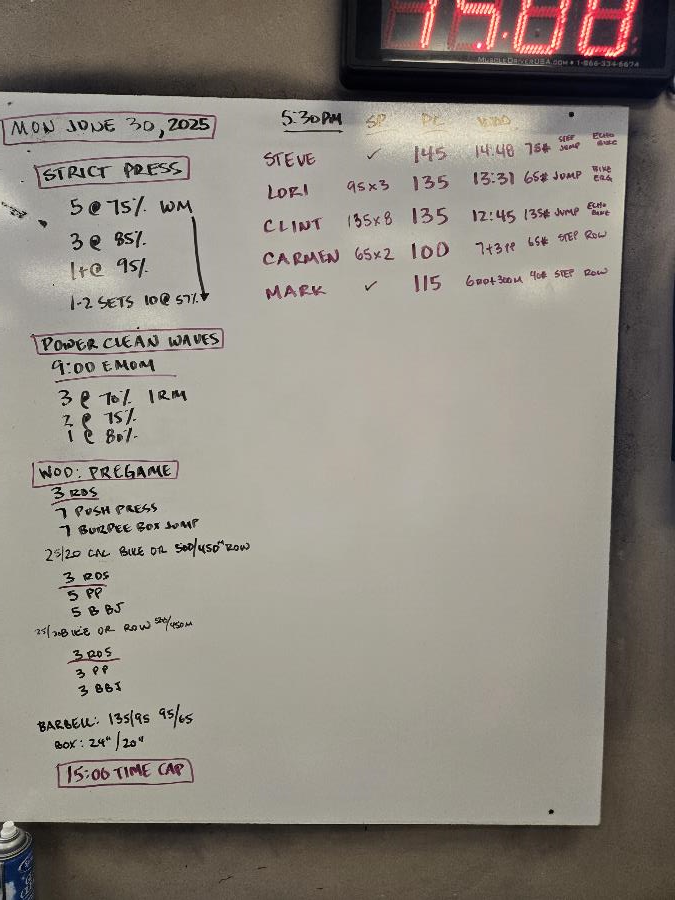 15:00
MUSCLEDRIVERUSA.COM • 1-866-334-6674
MON JUNE 30, 2025
STRICT PRESS
5 @ 75% WM
3 @ 85%
1+@ 95%
1-2 SETS 10 @ 57%
POWER CLEAN WAVES
9:00 EMOM
3 @ 70% 1RM
2 @ 75%
1 @ 80%
WOD: PREGAME
3 RDS
7 PUSH PRESS
7 BURPEE BOX JUMP
25/20 CAL BIKE OR 500/450M ROW
3 RDS
5 PP
5 BBJ
25/20 BIKE OR ROW 500/450M
3 RDS
3 PP
3 BBJ
BARBELL: 135/95 95/65
BOX: 24"/20"
15:00 TIME CAP
5:30PM SP PC WOD
STEVE ✓ 145 14:48 75# STEP JUMP ECHO BIKE
LORI 95x3 135 13:31 65# JUMP BIKE ERG
CLINT 135x8 135 12:45 135# JUMP ECHO BIKE
CARMEN 65x2 100 7+3PP 65# STEP ROW
MARK ✓ 115 6RD+300M 40# STEP ROW